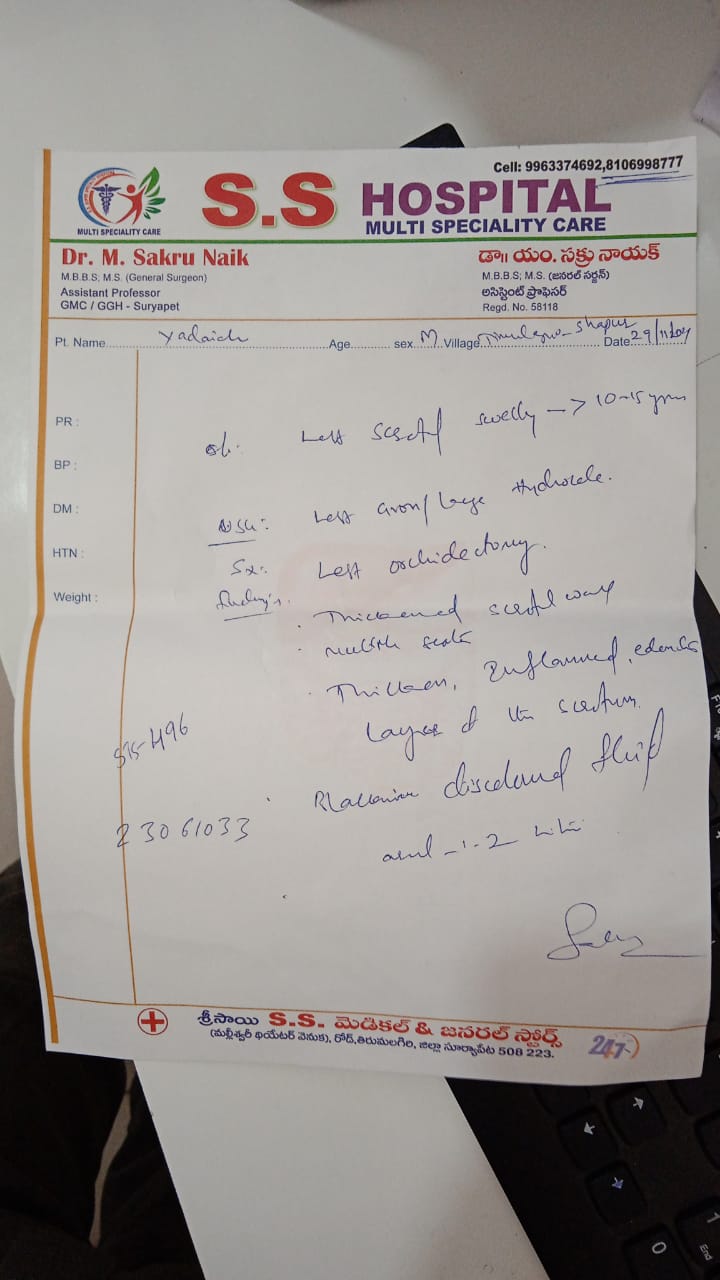 Cell: 9963374692,8106998777
S.S HOSPITAL
MULTI SPECIALITY CARE
MULTI SPECIALITY CARE
Dr. M. Sakru Naik
M.B.B.S; M.S. (General Surgeon)
Assistant Professor
GMC / GGH - Suryapet
డా॥ యం. సక్రు నాయక్
M.B.B.S; M.S. (జనరల్ సర్జన్)
అసిస్టెంట్ ప్రొఫెసర్
Regd. No. 58118
Pt. Name Yadaiah Age sex M Village Date 29/11/
PR :
BP :
DM :
HTN :
Weight :
Left scrotal swelling -> 10-15 years
Left large Hydrocele.
Sx:- Left orchidectomy.
Findings.
. Thickened scrotal wall
. multiple
. Thicken, Inflammed, edematous
layers of the scrotum.
515-496
. discoloured fluid
23061033
-1-2
శ్రీసాయి S.S. మెడికల్ & జనరల్ స్టోర్స్
(మల్లీశ్వరీ థియేటర్ వెనుక), రోడ్,తిరుమలగిరి, జిల్లా సూర్యాపేట 508 223.
247